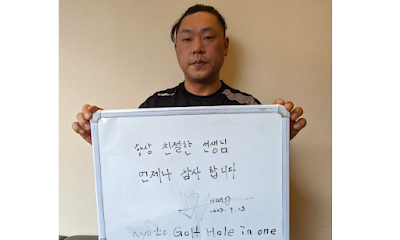 항상 친절한 선생님
언제나 감사 합니다
Golf Hole in one